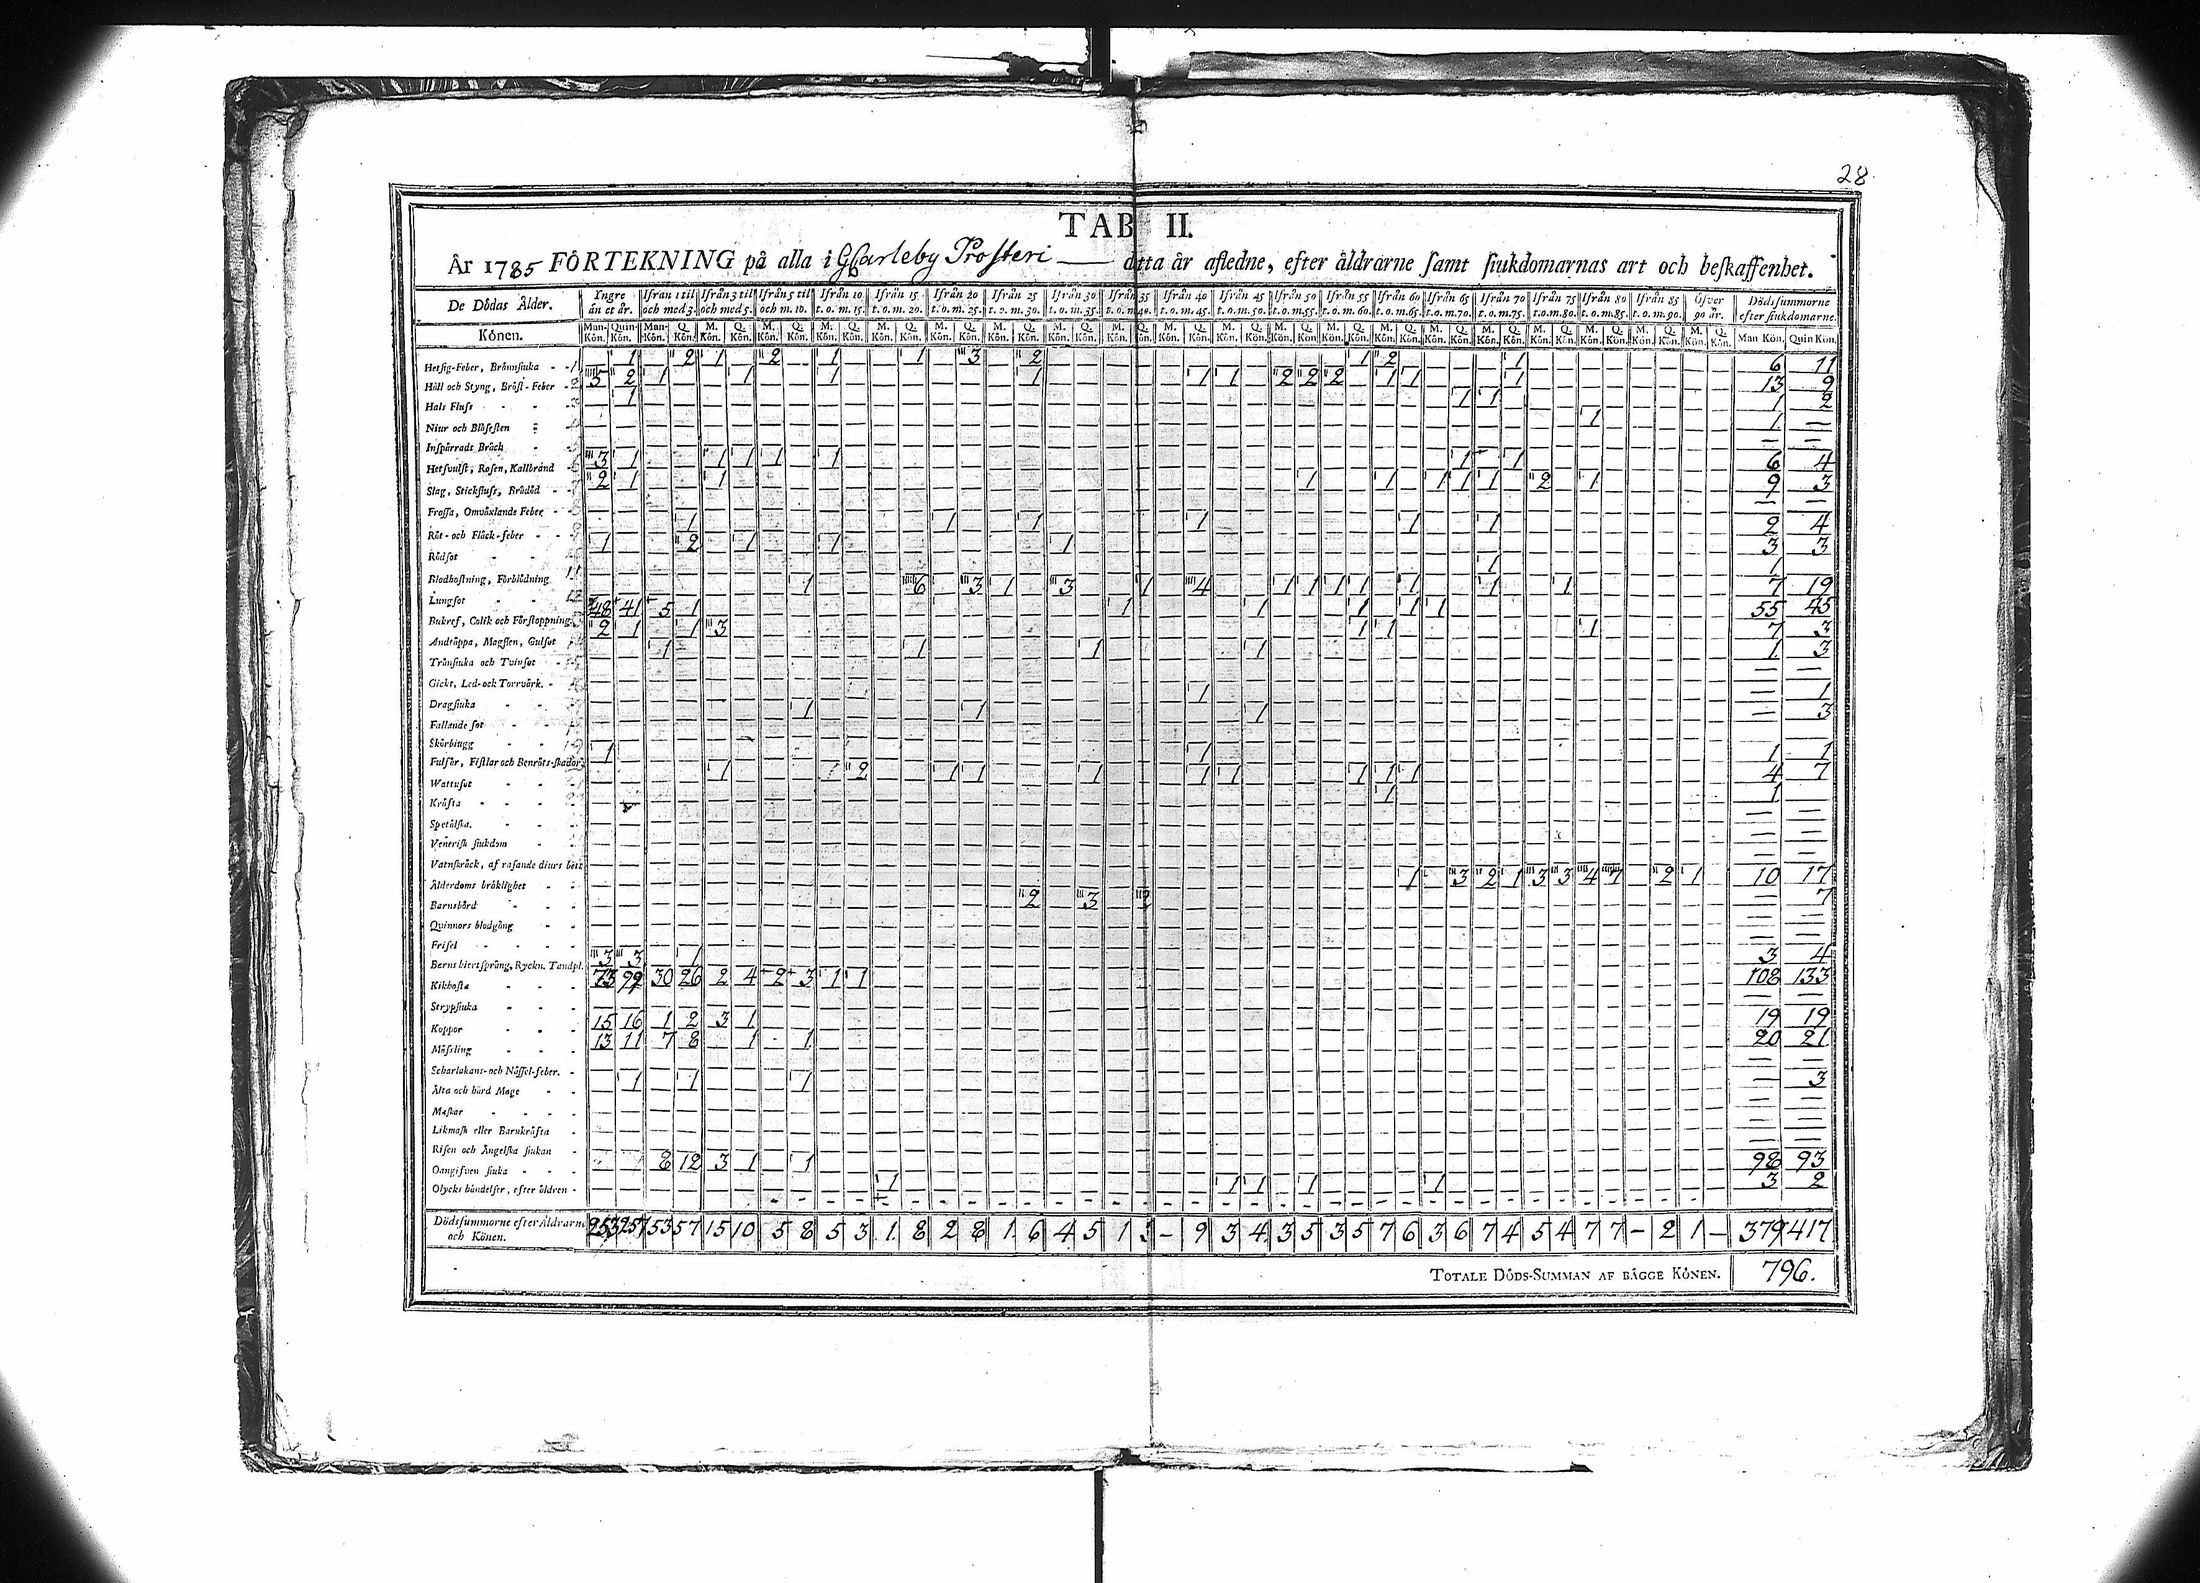 28
TAB II.
År 1785 FÖRTEKNING på alla i Gbarleby Prosteri — åtta år afledne, efter åldrarne samt siukdomarnas art och beskaffenhet.
De Dödas Ålder. Yngre än et år. Ifrån 1 til och med 3. Ifrån 3 til och med 5. Ifrån 5 til och m. 10. Ifrån 10 t.o.m. 15. Ifrån 15 t.o.m. 20. Ifrån 20 t.o.m. 25. Ifrån 25 t.o.m. 30. Ifrån 30 t.o.m. 35. Ifrån 35 t.o.m. 40. Ifrån 40 t.o.m. 45. Ifrån 45 t.o.m. 50. Ifrån 50 t.o.m. 55. Ifrån 55 t.o.m. 60. Ifrån 60 t.o.m. 65. Ifrån 65 t.o.m. 70. Ifrån 70 t.o.m. 75. Ifrån 75 t.o.m. 80. Ifrån 80 t.o.m. 85. Ifrån 85 t.o.m. 90. Öfver 90 år. Dödssummorne efter siukdomarne.
Könen. Man-Kön. Quin-Kön. Man-Kön. Q. Kön. M. Kön. Q. Kön. M. Kön. Q. Kön. M. Kön. Q. Kön. M. Kön. Q. Kön. M. Kön. Q. Kön. M. Kön. Q. Kön. M. Kön. Q. Kön. M. Kön. Q. Kön. M. Kön. Q. Kön. M. Kön. Q. Kön. M. Kön. Q. Kön. M. Kön. Q. Kön. M. Kön. Q. Kön. M. Kön. Q. Kön. M. Kön. Q. Kön. M. Kön. Q. Kön. M. Kön. Q. Kön. M. Kön. Q. Kön. M. Kön. Q. Kön. Man Kön. Quin Kön.
Hetsig-Feber, Brännsiuka - 1 — 1 — 2 1 — 2 — 1 — — 1 — 3 — 2 — — — — — — — — — — — 1 2 — — — — 1 — — — — — — — — 6 11
Håll och Styng, Bröst-Feber - 2 5 2 1 — — 1 — — 1 — — — — — — 1 — — — — — 1 1 — 2 2 2 — 1 1 — — — 1 — — — — — — — — 13 9
Hals Fluss - - - 3 — 1 — — — — — — — — — — — — — — — — — — — — — — — — — — — — — 1 1 — — — — — — — — — 1 2
Niur och Blåsesten — — — — — — — — — — — — — — — — — — — — — — — — — — — — — — — — — — — — 1 — — — — — 1 —
Inspärradt Bråck — —
Hetsvulst, Rosen, Kallbrand 3 1 — — 1 1 1 — 1 — — — — — — — — — — — — — — — — — — — — — — 1 — 1 — — — — — — — — 6 4
Slag, Stickfluss, Brådöd 2 1 — — 1 — — — — — — — — — — — — — — — — — — — — 1 — — 1 — 1 1 1 — 2 — 1 — — — — — 9 3
Frossa, Omväxlande Feber — —
Röt- och Fläck-feber — — — 1 — — — — — — — — 1 — — 1 — — — — — 1 — — — — — — — 1 — — 1 — — — — — — — — — 2 4
Rödsot 1 — — 2 — 1 — — 1 — — — — — — — 1 — — — — — — — — — — — — — — — — — — — — — — — — — 3 3
Blodhostning, Förblödning 11 — — — — — — — — — — — — — — — — — — — — — — — — — — — — — — — 1 — — — — — — — — — 1 —
Lungsot 12 — — — — — — — 1 — — — 6 — 3 1 — 3 — — 1 — 4 — — 1 1 1 1 — 1 — — 1 — — 1 — — — — — — 7 19
Bukref, Colik och Förstoppning 48 41 5 1 — — — — — — — — — — — — — — 1 — — — — 1 — — — 1 — 1 1 — — — — — — — — — — — 55 45
Andtäppa, Magsten, Gulsot 2 1 — 1 3 — — — — — — — — — — — — — — — — — — — — — — 1 1 — — — — — — — 1 — — — — — 7 3
Trånsiuka och Tvinsot — — 1 — — — — — — — — 1 — — — — — 1 — — — — — 1 — — — — — — — — — — — — — — — — — — 1 3
Gickt, Led- och Torrvärk. — —
Dragsiuka — — — — — — — — — — — — — — — — — — — — — 1 — — — — — — — — — — — — — — — — — — — — — 1
Fallande sot — — — — — — — 1 — — — — — 1 — — — — — — — — — 1 — — — — — — — — — — — — — — — — — — — 3
Skörbiugg — —
Fulsår, Fistlar och Benröts-skador 1 — — — — — — — — — — — — — — — — — — — — 1 — — — — — — — — — — — — — — — — — — — — 1 1
Wattusot — — — — 1 — — — 1 2 — — 1 1 — — — 1 — — — 1 1 — — — — 1 1 1 — — — — — — — — — — — — 4 7
Kräfta — — — — — — — — — — — — — — — — — — — — — — — — — — — — 1 — — — — — — — — — — — — — 1 —
Spetälska. — —
Venerisk siukdom — —
Vatnskräck, af rasande diurs bett — —
Ålderdoms bräklighet — — — — — — — — — — — — — — — — — — — — — — — — — — — — — 1 — 3 2 1 3 3 4 7 — 2 1 — 10 17
Barnsbörd — — — — — — — — — — — — — — — 2 — 3 — — — — — — — — — — — — — — — — — — — — — — — 7
Quinnors blodgång — —
Frisel — —
Barns hiertsprång, Ryckn. Tandpl. 3 3 — 1 — — — — 3 4
Kikhosta 73 79 30 26 2 4 2 3 1 1 — — 108 133
Strypsiuka — —
Koppor 15 16 1 2 3 1 — — 19 19
Mässling 13 11 7 8 — 1 — 1 — — 20 21
Scharlakans- och Nässel-feber. — —
Älta och hård Mage — 1 — 1 — — — 1 — 3
Maskar — —
Likmask eller Barnkräfta — —
Risen och Ängelska siukan — —
Oangifven siuka 8 12 3 1 — 1 — — 98 93
Olycks händelser, efter äldren — — — — — — — — — — 1 — — — — — — — — — — — 1 1 — 1 — — — — 1 — — — — — — — — — — — 3 2
Dödssummorne efter Åldrarne och Könen. 253 257 53 57 15 10 5 8 5 3 1 8 2 8 1 6 4 5 1 3 – 9 3 4 3 5 3 5 7 6 3 6 7 4 5 4 7 7 – 2 1 – 379 417
TOTALE DÖDS-SUMMAN AF BÄGGE KÖNEN. 796.